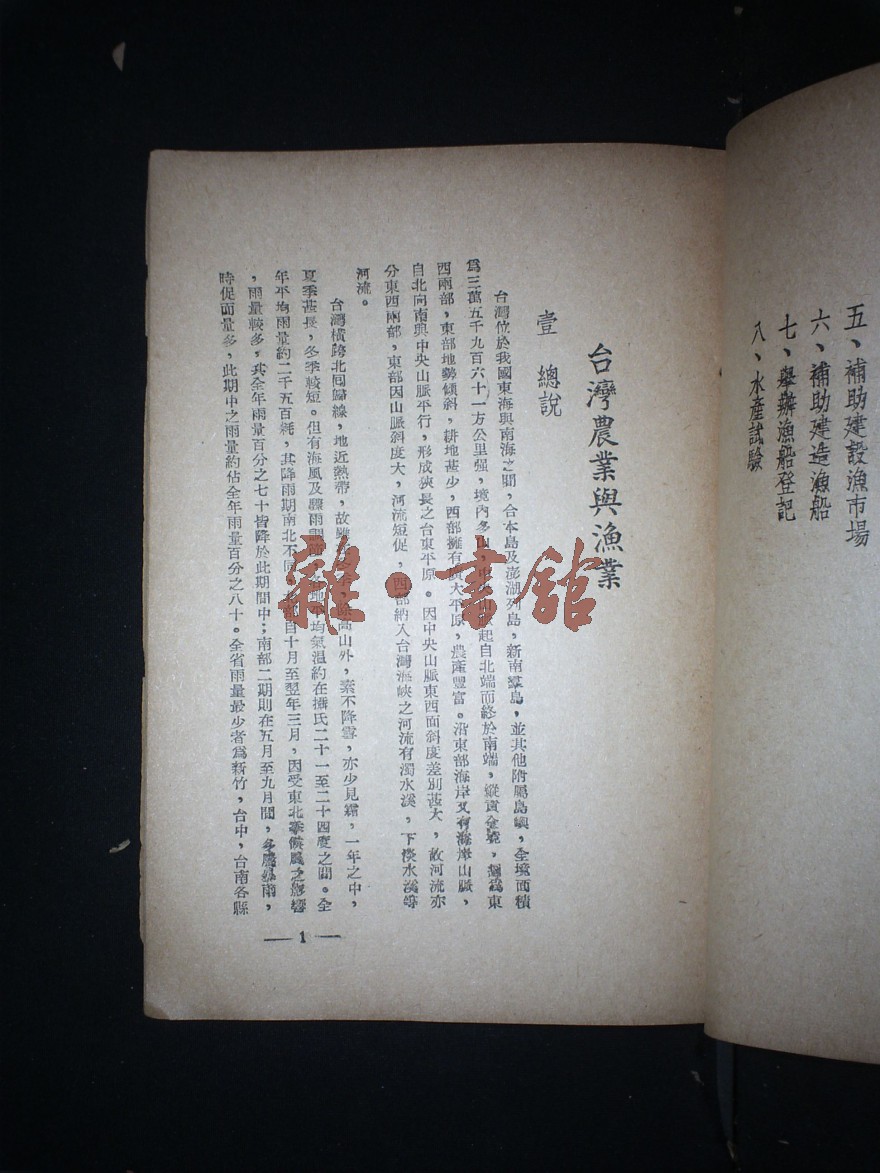 五、補助建設漁市場
六、補助建造漁船
七、舉辦漁船登記
八、水產試驗
台灣農業與漁業
壹 總說
台灣位於我國東海與南海之間，合本島及澎湖列島，新南羣島，並其他附屬島嶼，全境面積
爲三萬五千九百六十一方公里强，境內多山，中央山脈起自北端而終於南端，縱貫全境，劃爲東
西兩部，東部地勢傾斜，耕地甚少，西部擁有廣大平原，農產豐富。沿東部海岸又有海岸山脈，
自北向南與中央山脈平行，形成狹長之台東平原。因中央山脈東西面斜度差別甚大，故河流亦
分東西兩部，東部因山脈斜度大，河流短促，西部納入台灣海峽之河流有濁水溪，下淡水溪等
河流。
台灣橫跨北回歸線，地近熱帶，故 除高山外，素不降雪，亦少見霜，一年之中，
夏季甚長，冬季較短。但有海風及驟雨調節，各地平均氣溫約在攝氏二十一至二十四度之間。全
年平均雨量約二千五百粍，其降雨期南北不同，北部自十月至翌年三月，因受東北季候風之影響
，雨量較多，其全年雨量百分之七十皆降於此期間中；南部二期則在五月至九月間，多驟暴雨，
時促而量多，此期中之雨量約佔全年雨量百分之八十。全省雨量最少者爲新竹，台中，台南各縣
— 1 —
雜·書館